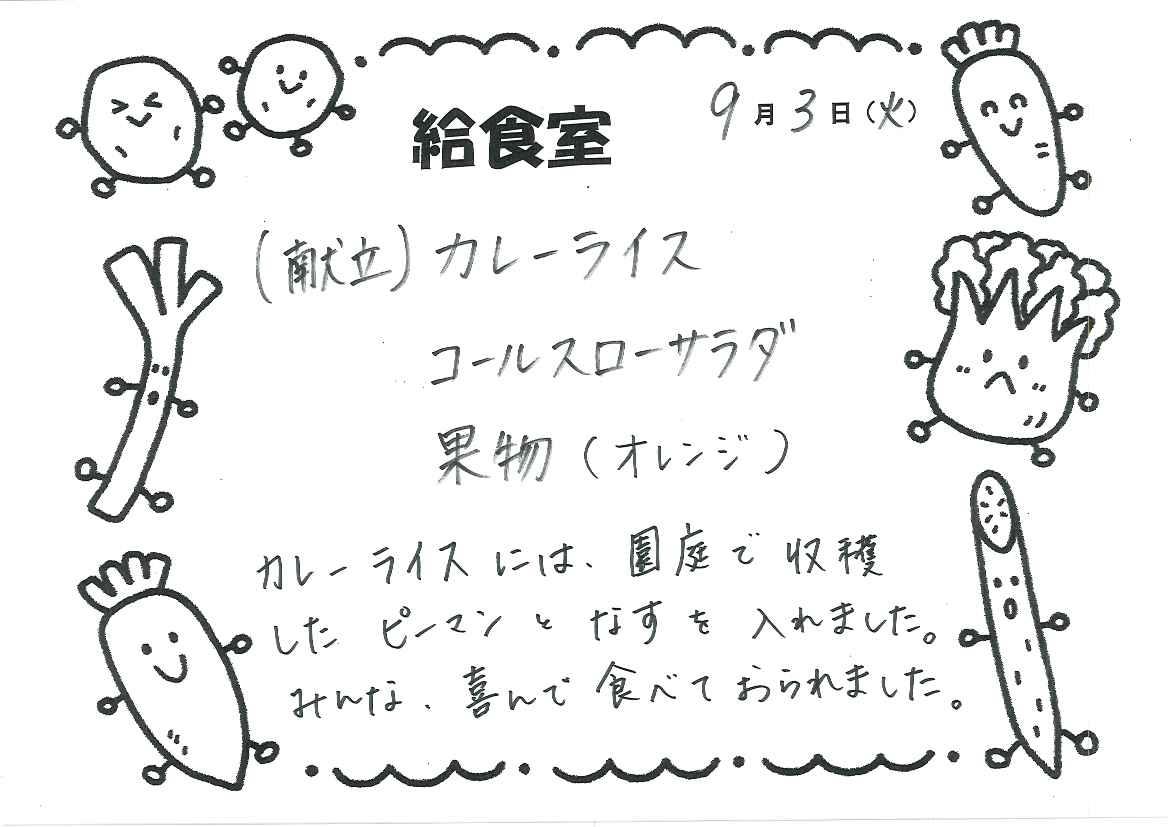 給食室
9月3日(火)
(献立)カレーライス
コールスローサラダ
果物(オレンジ)
カレーライスには、園庭で収穫
したピーマンとなすを入れました。
みんな、喜んで食べておられました。